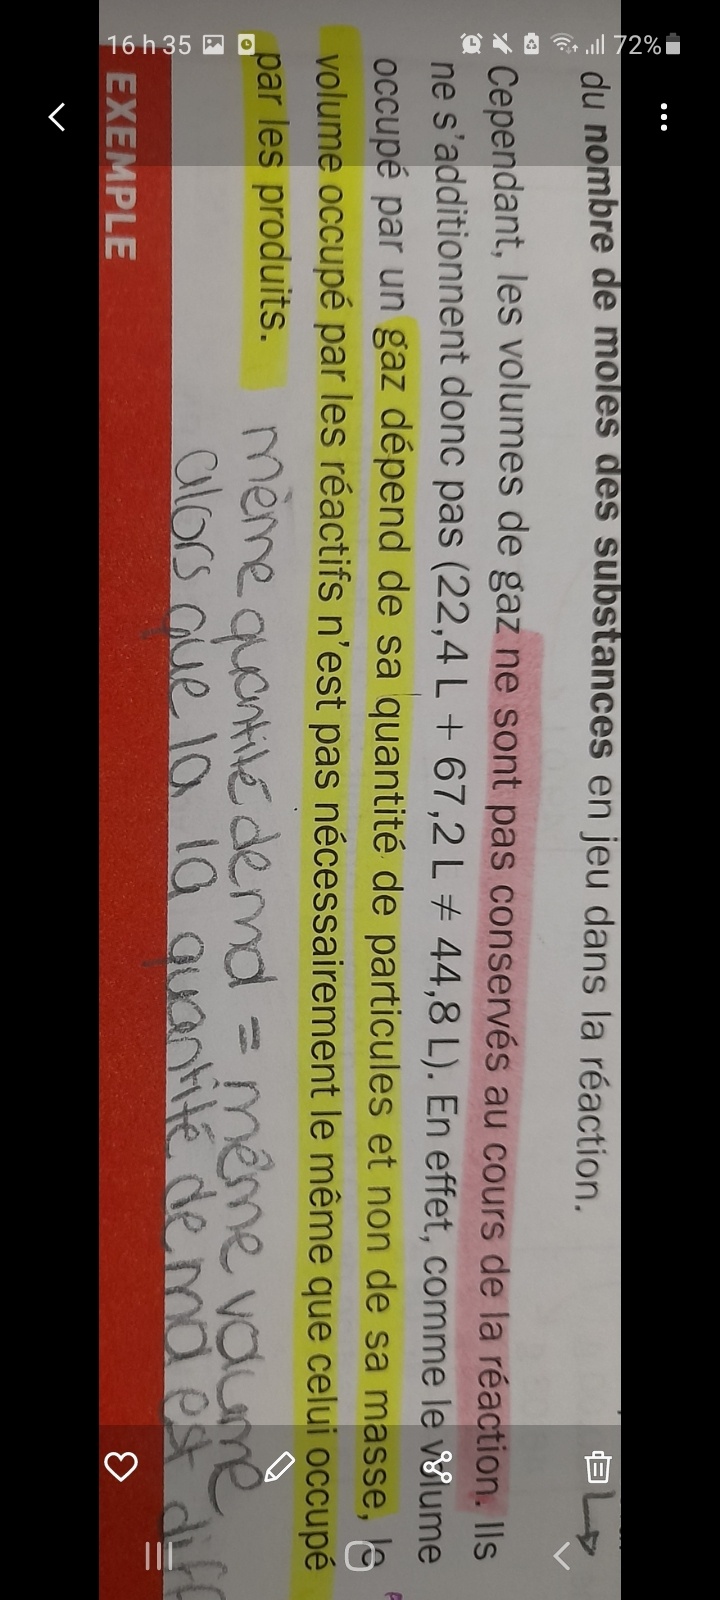 16 h 35
72%
du nombre de moles des substances en jeu dans la réaction.
Cependant, les volumes de gaz ne sont pas conservés au cours de la réaction. Ils
ne s'additionnent donc pas (22,4 L + 67,2 L ≠ 44,8 L). En effet, comme le volume
occupé par un gaz dépend de sa quantité de particules et non de sa masse, le
volume occupé par les réactifs n'est pas nécessairement le même que celui occupé
par les produits.
même quantité de mol = même volume
alors que la la quantité de mol est
EXEMPLE